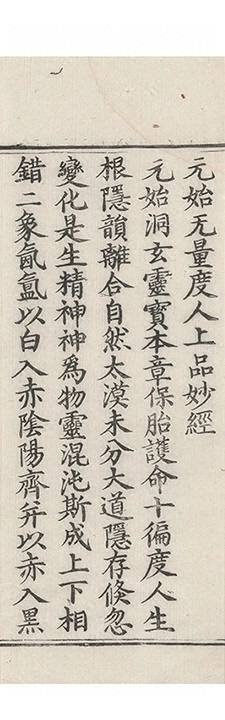 元始无量度人上品妙經
元始洞玄靈寶本章保胎護命十徧度人生
根隱韻離合自然太漠未分大道隱存倐忽
變化是生精神神爲物靈混沌斯成上下相
錯二象氤氳以白入赤陰陽齊并以赤入黑